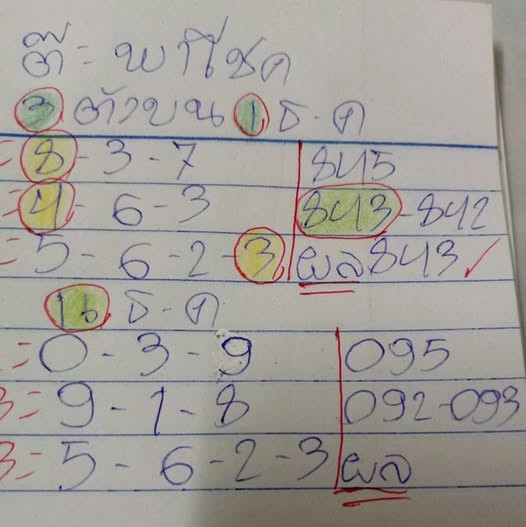 ตี๋ = พาโชค
3 ตัวบน 1 ธ.ค
= 8 - 3 - 7 845
= 4 - 6 - 3 843 - 842
= 5 - 6 - 2 - 3 ผล 843 ✓
16 ธ.ค
= 0 - 3 - 9 095
3= 9 - 1 - 8 092-093
3= 5 - 6 - 2 - 3 ผล